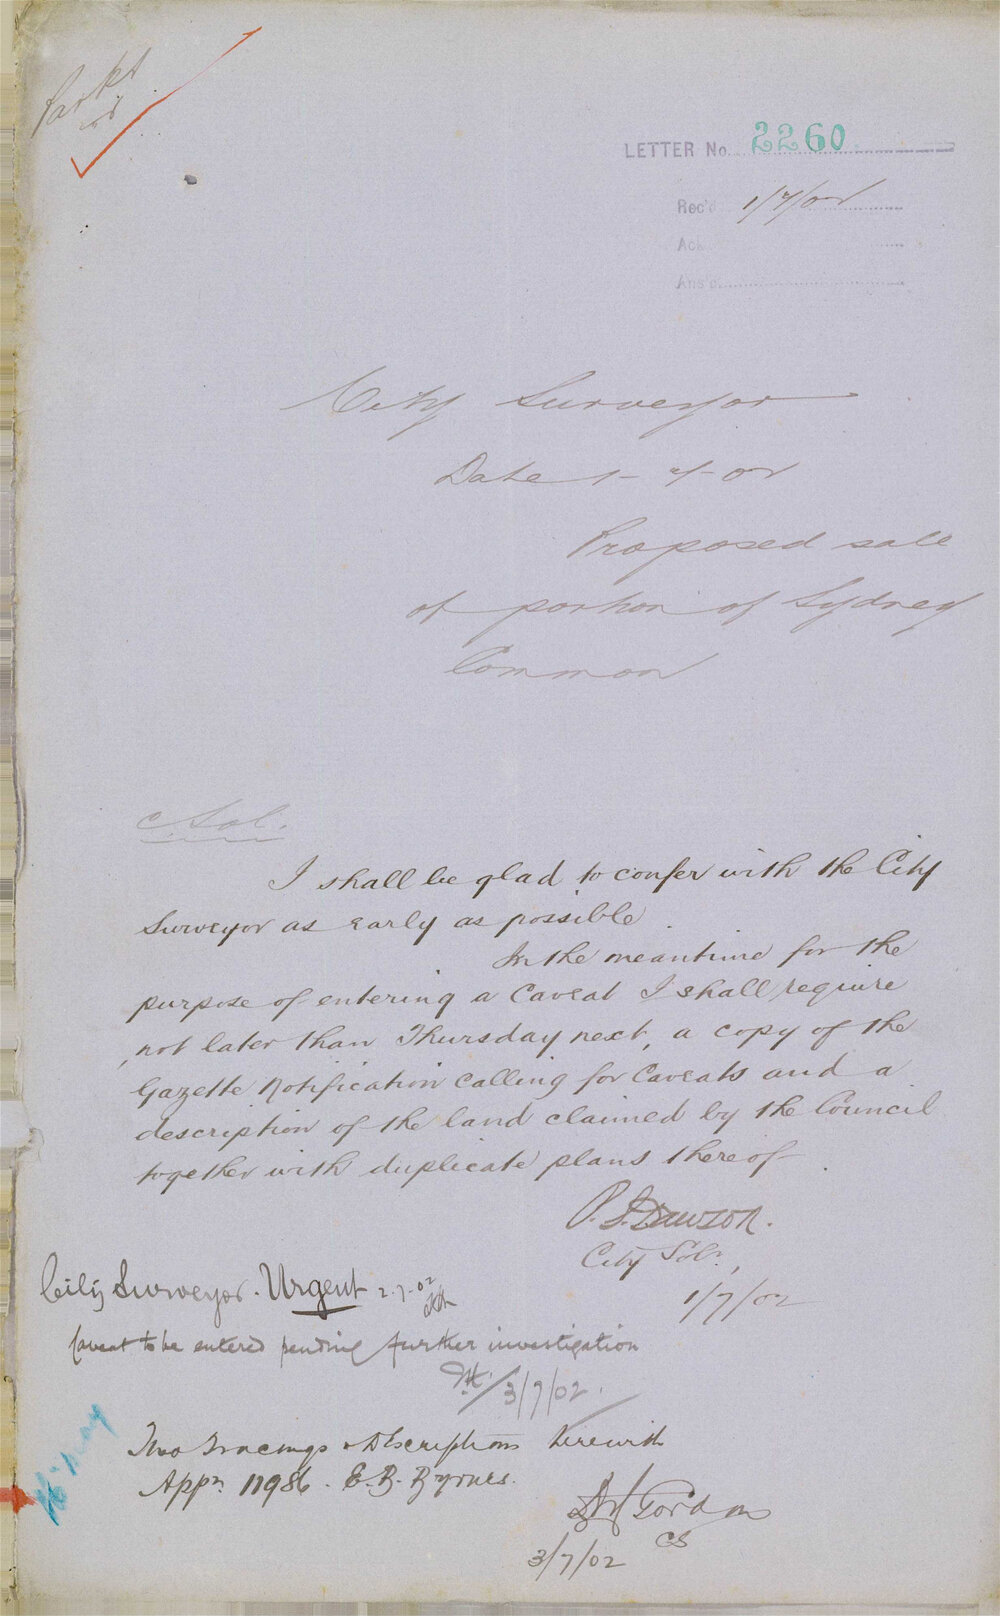 Parks
LETTER No. 2260
Rec'd 1/7/02
Ack
Ans'd
City Surveyor
Date 1-7-02
Proposed sale
of portion of Sydney
Common
C Sol.
I shall be glad to confer with the City
Surveyor as early as possible
In the meantime for the
purpose of entering a Caveat I shall require
not later than Thursday next, a copy of the
Gazette Notification calling for Caveats and a
description of the land claimed by the Council
together with duplicate plans thereof.
City Solr.
1/7/02
City Surveyor. Urgent 2.7.02
Caveat to be entered pending further investigation
3/7/02.
Two Tracings & Descriptions herewith
Appn. 11986. E. B. Byrnes.
Gordon
CS
3/7/02